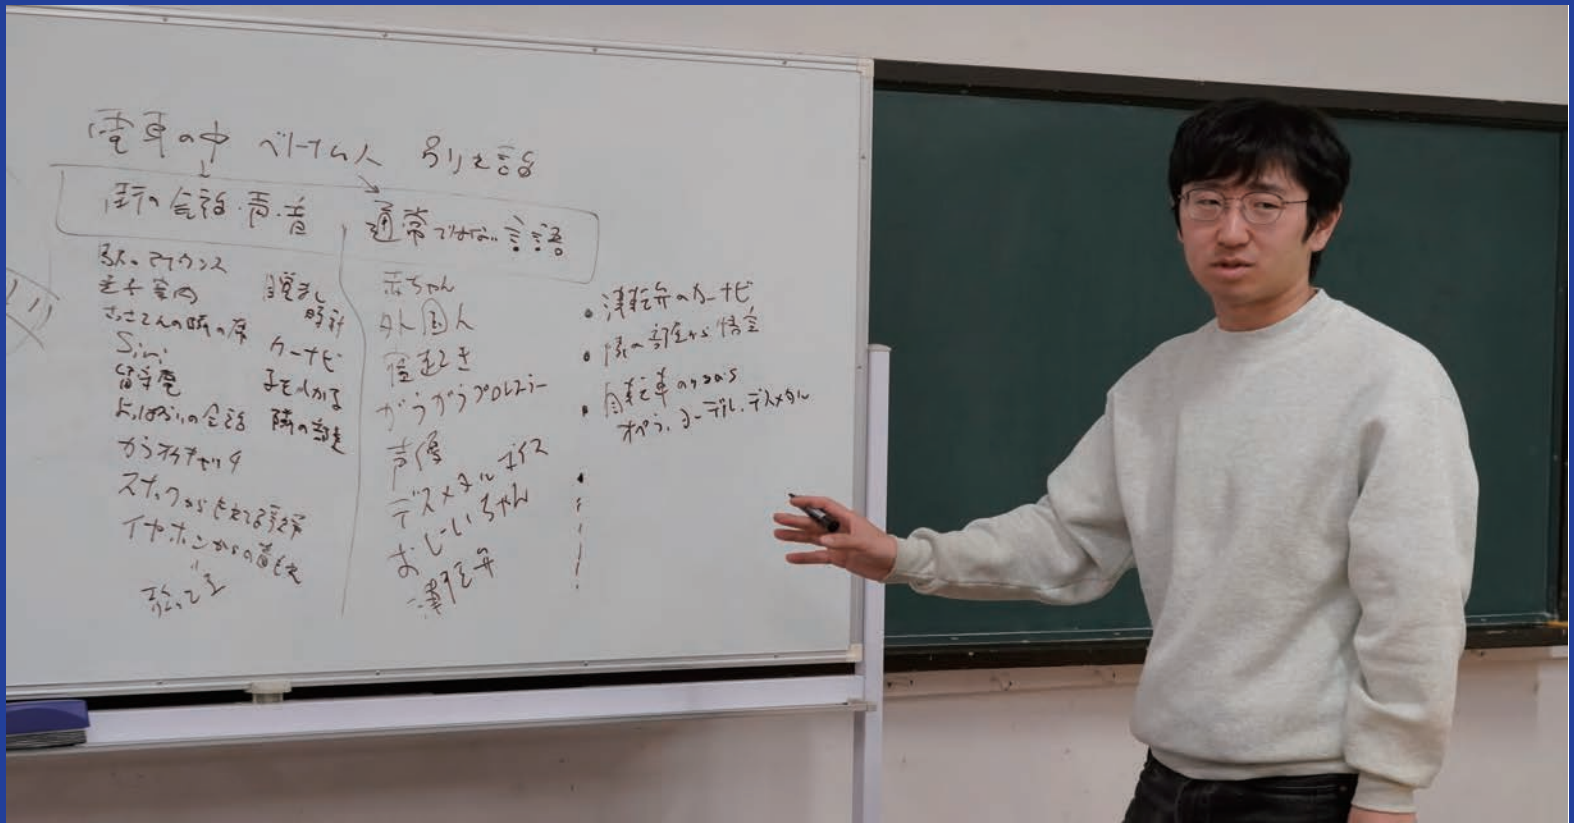 電車の中 ベトナム人 別れ話
街の会話・声・音
通常ではない言語
駅のアナウンス
迷子案内
きっさてんの隣の席
Siri
留守電
よっぱらいの会話
カラスキャッチ
スナックから聞こえる
イヤホンからの音もれ
歌ってる
目覚まし時計
カーナビ
子をしかる
隣の部屋
赤ちゃん
外国人
寝起き
ガラガラプロレスラー
声優
デスメタルボイス
おじいちゃん
津軽弁
・津軽弁のカーナビ
・隣の部屋から悟空
・自転車のすれちがい
オペラ、ヨーデル、デスメタル